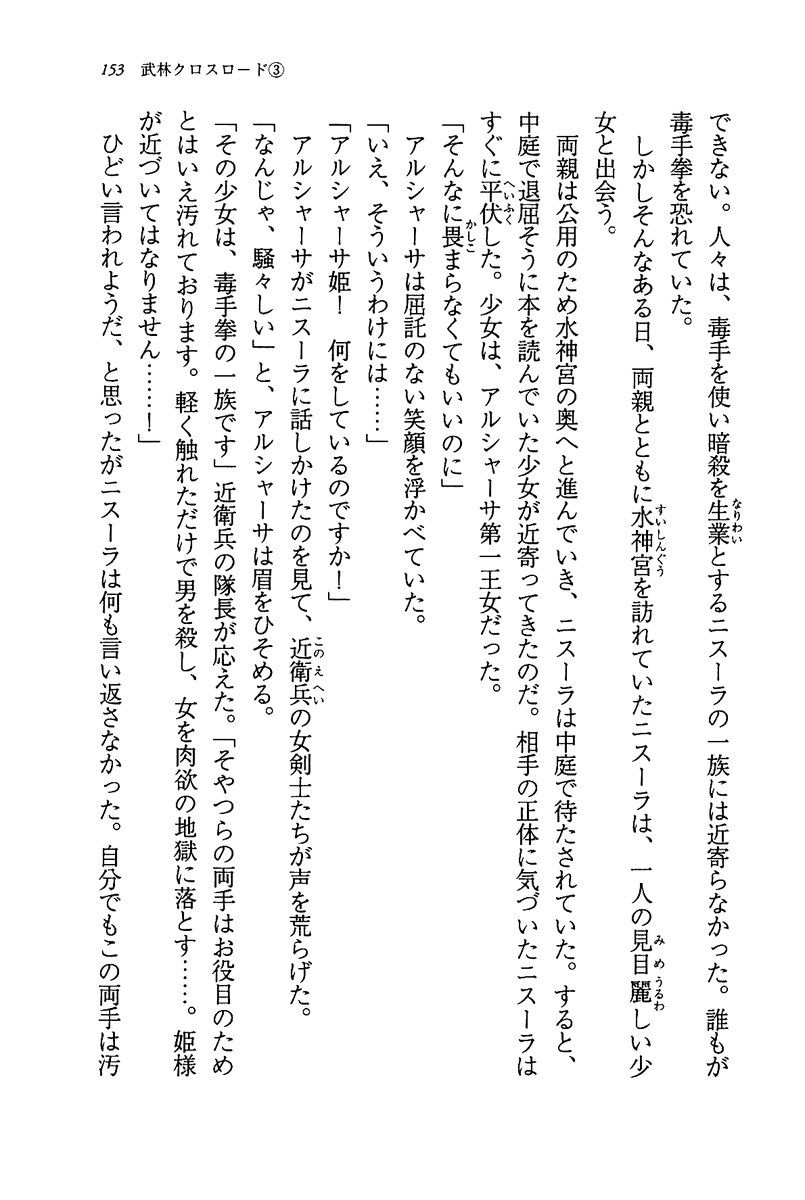 153　武林クロスロード③
できない。人々は、毒手を使い暗殺を生業とするニスーラの一族には近寄らなかった。誰もが
毒手拳を恐れていた。
　しかしそんなある日、両親とともに水神宮を訪れていたニスーラは、一人の見目麗しい少
女と出会う。
　両親は公用のため水神宮の奥へと進んでいき、ニスーラは中庭で待たされていた。すると、
中庭で退屈そうに本を読んでいた少女が近寄ってきたのだ。相手の正体に気づいたニスーラは
すぐに平伏した。少女は、アルシャーサ第一王女だった。
「そんなに畏まらなくてもいいのに」
　アルシャーサは屈託のない笑顔を浮かべていた。
「いえ、そういうわけには……」
「アルシャーサ姫！　何をしているのですか！」
　アルシャーサがニスーラに話しかけたのを見て、近衛兵の女剣士たちが声を荒らげた。
「なんじゃ、騒々しい」と、アルシャーサは眉をひそめる。
「その少女は、毒手拳の一族です」近衛兵の隊長が応えた。「そやつらの両手はお役目のため
とはいえ汚れております。軽く触れただけで男を殺し、女を肉欲の地獄に落とす……。姫様
が近づいてはなりません……！」
　ひどい言われようだ、と思ったがニスーラは何も言い返さなかった。自分でもこの両手は汚
なりわい
すいしんぐう
みめうるわ
へいふく
かしこ
このえへい